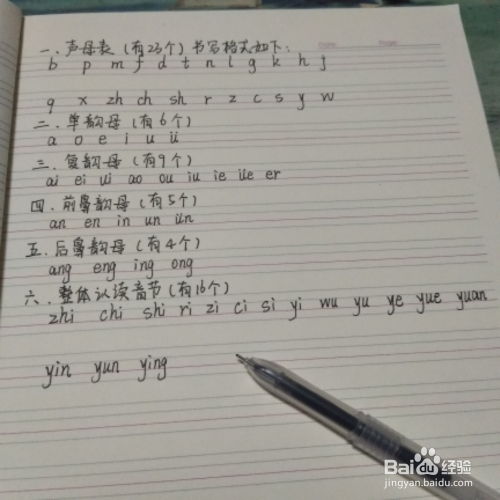 一．声母表（有23个）书写格式如下：
b p m f d t n l g k h j
q x zh ch sh r z c s y w
二．单韵母（有6个）
a o e i u ü
三．复韵母（有9个）
ai ei ui ao ou iu ie üe er
四．前鼻韵母（有5个）
an en in un ün
五．后鼻韵母（有4个）
ang eng ing ong
六．整体认读音节（有16个）
zhi chi shi ri zi ci si yi wu yu ye yue yuan
yin yun ying
Baidu经验
jingyan.baidu.com